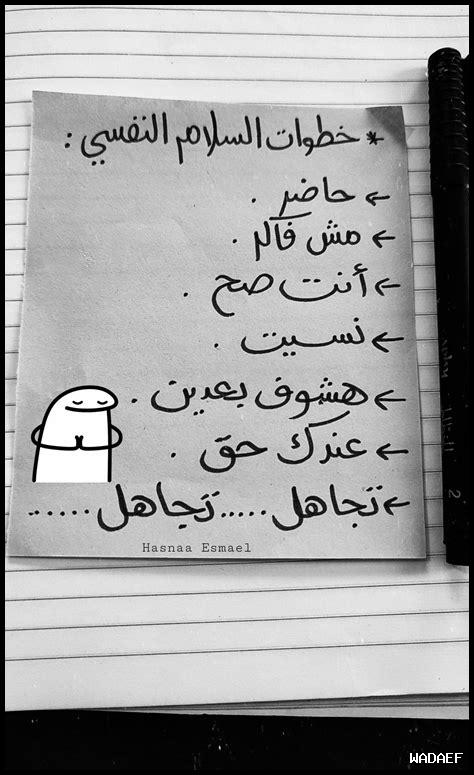 * خطوات السلام النفسي :
← حاضر .
← مش فاكر .
← أنت صح .
← نسيت .
← هشوف بعدين .
← عندك حق .
← تجاهل ..... تجاهل ......
Hasnaa Esmael
WADAEF